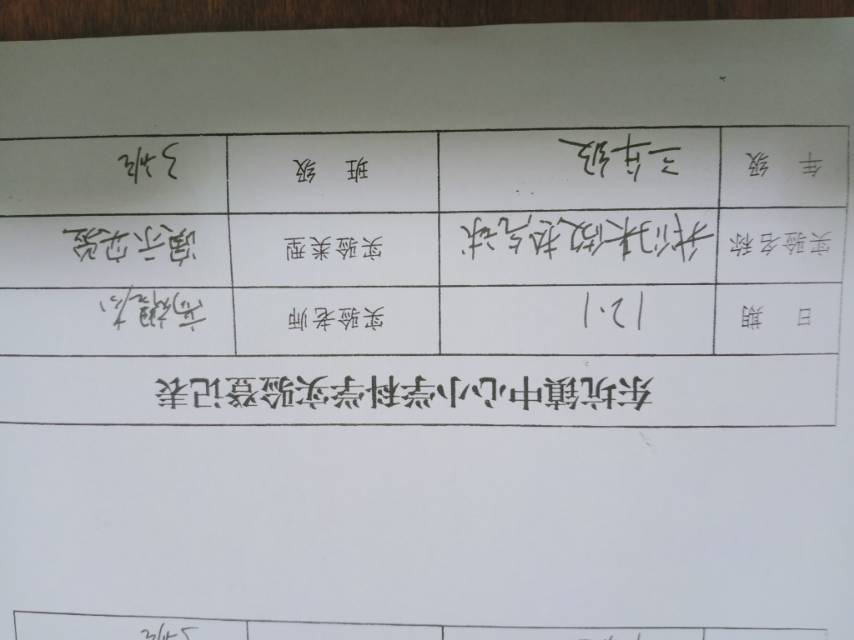 3班
东坑镇中心小学科学实验登记表
日 期 12.1 实验老师
实验名称 我们来做热气球 实验类型 演示实验
年 级 三年级 班 级 3班